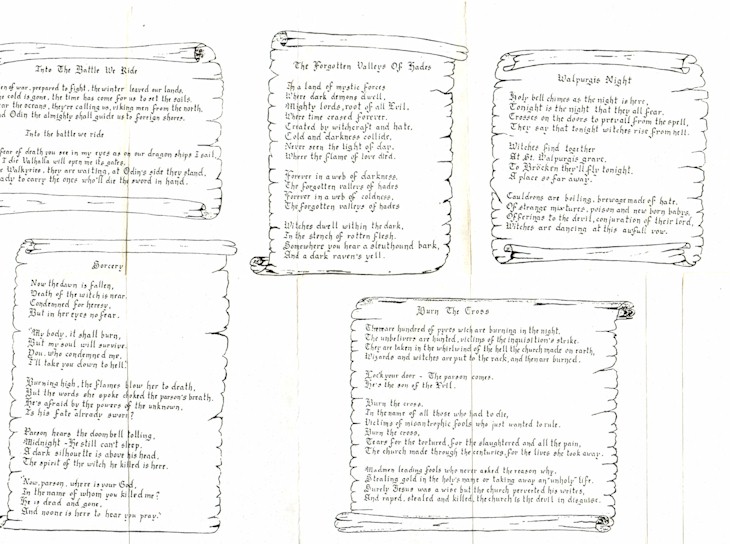 Into The Battle We Ride
en of war, prepared to fight, the winter leaved our lands,
e cold is gone, the time has come for us to set the sails.
ar the oceans, they're calling us, viking men from the north,
d Odin the almighty shall guide us to foreign shores.
Into the battle we ride
fear of death you see in my eyes as on our dragon ships I sail,
I die Valhalla will open me its gates.
e Walkyries, they are waiting, at Odin's side they stand,
ady to carry the ones who'll die the sword in hand.
The Forgotten Valleys Of Hades
In a land of mystic forces
Where dark demons dwell,
Mighty lords, root of all Evil,
Where time ceased forever.
Created by witchcraft and hate,
Cold and darkness collide,
Never seen the light of day,
Where the flame of love died.
Forever in a web of darkness,
The forgotten valleys of hades
Forever in a web of coldness,
The forgotten valleys of hades
Witches dwell within the dark,
In the stench of rotten flesh.
Somewhere you hear a sleuthound bark,
And a dark raven's yell.
Walpurgis Night
Holy bell chimes as the night is here,
Tonight is the night that they all fear.
Crosses on the doors to prevail from the spell,
They say that tonight witches rise from hell.
Witches find together
At St. Walpurgis grave,
To Bröcken they'll fly tonight,
A place so far away.
Cauldrons are boiling, brewage made of hate,
Of strange mixtures, poison and new born babys,
Offerings to the devil, conjuration of their lord,
Witches are dancing at this awfull vow.
Sorcery
Now the dawn is fallen,
Death of the witch is near.
Condemned for heresy,
But in her eyes no fear.
"My body, it shall burn,
But my soul will survive.
You, who condemned me,
I'll take you down to hell."
Burning high, the flames blow her to death,
But the words she spoke choked the parson's breath.
He's afraid by the powers of the unknown,
Is his fate already sworn?
Parson hears the doombell tolling,
Midnight - He still can't sleep.
A dark silhouette is above his head,
The spirit of the witch he killed is here.
"Now, parson, where is your God,
In the name of whom you killed me?
He is dead and gone,
And noone is here to hear you pray."
Burn The Cross
There are hundred of pyres wich are burning in the night,
The unbelivers are hunted, victims of the inquisition's strike.
They are taken in the whirlwind of the hell the church made on earth,
Wizards and witches are put to the rack, and then are burned.
Lock your door - The parson comes.
He's the son of the Evil.
Burn the cross,
In the name of all those who had to die,
Victims of misantrophic fools who just wanted to rule.
Burn the cross,
Tears for the tortured, for the slaughtered and all the pain,
The church made through the centuries, for the lives she took away.
Madmen leading fools who never asked the reason why.
Stealing gold in the holy's name or taking away an "unholy" life.
Surely Jesus was a wise but the church perverted his writes,
And raped, stealed and killed, the church is the devil in disguise.